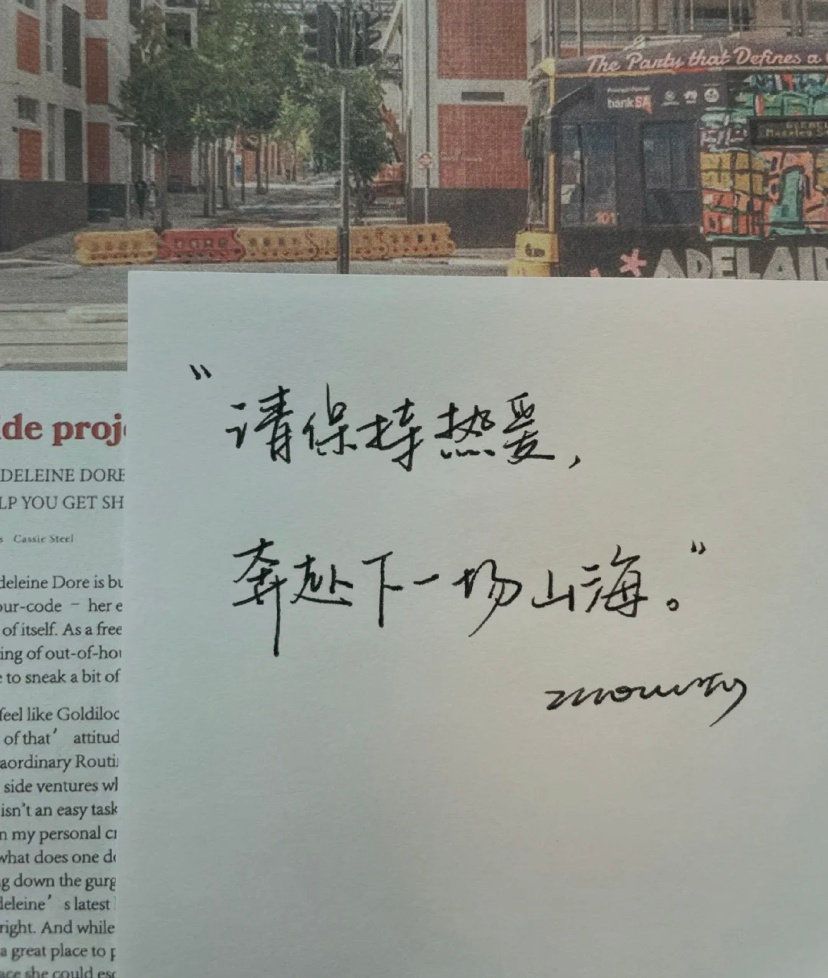 The Party that Defines a
bankSA
GLENEL
101
ADELAID
“请保持热爱，
奔赴下一场山海。”
ide proj
DELEINE DORE
LP YOU GET SH
s Cassie Steel
deleine Dore is bu
our-code – her e
of itself. As a free
ing of out-of-hou
e to sneak a bit of
feel like Goldiloc
of that’ attitud
aordinary Routi
side ventures wh
isn’t an easy task
n my personal cr
what does one do
g down the gurg
deleine’s latest
right. And while
a great place to p
ace she could esc